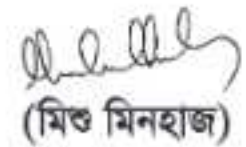 (মিশু মিনহাজ)